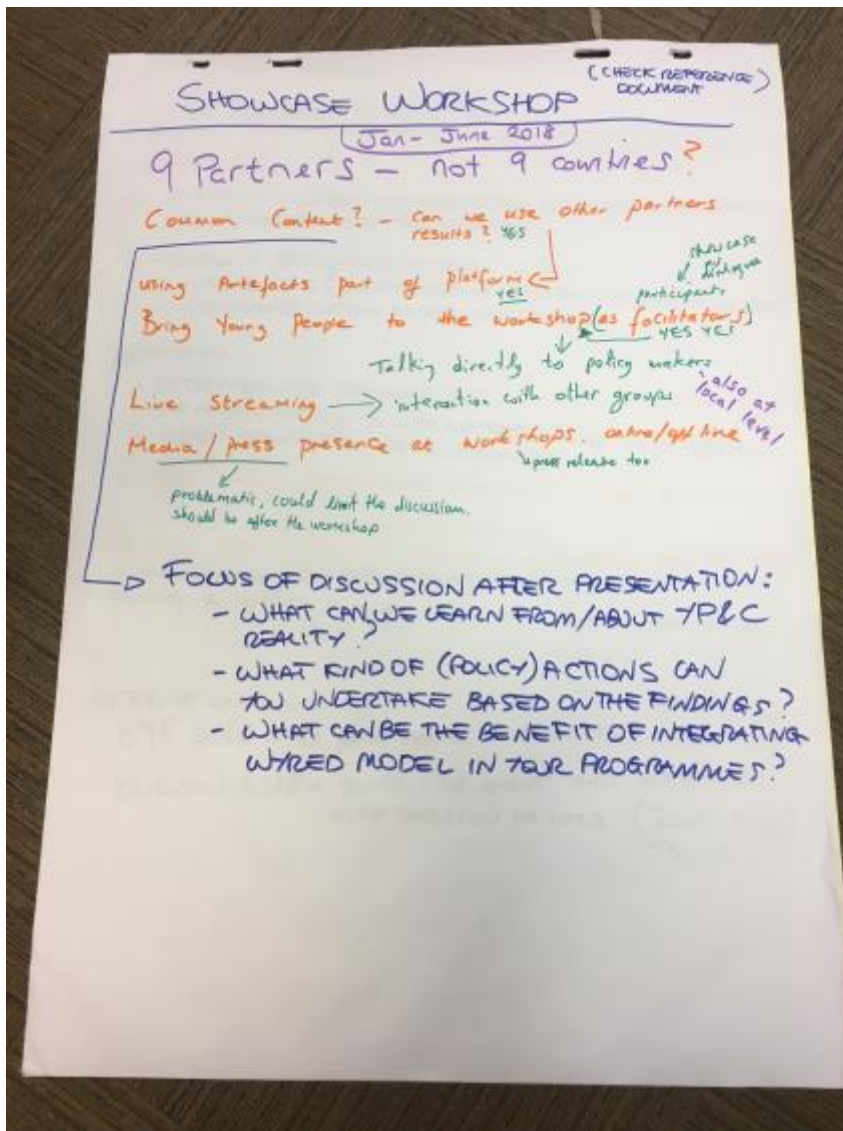 (CHECK REFERENCE)
DOCUMENT
SHOWCASE WORKSHOP
Jan - June 2018
9 Partners - not 9 countries?
Common Content? - Can we use other partners
results? YES
showcase
dialogue
using Artefacts part of platform
YES
participants
Bring Young People to the workshop (as facilitators)
YES YES
Talking directly to policy makers
also at
local level
Live Streaming → interaction with other groups
Media/press presence at workshops. online/offline
press release too
problematic, could limit the discussion.
should be after the workshop
FOCUS OF DISCUSSION AFTER PRESENTATION:
- WHAT CAN WE LEARN FROM/ABOUT YP&C
REALITY?
- WHAT KIND OF (POLICY) ACTIONS CAN
YOU UNDERTAKE BASED ON THE FINDINGS?
- WHAT CAN BE THE BENEFIT OF INTEGRATING
WYRED MODEL IN YOUR PROGRAMMES?